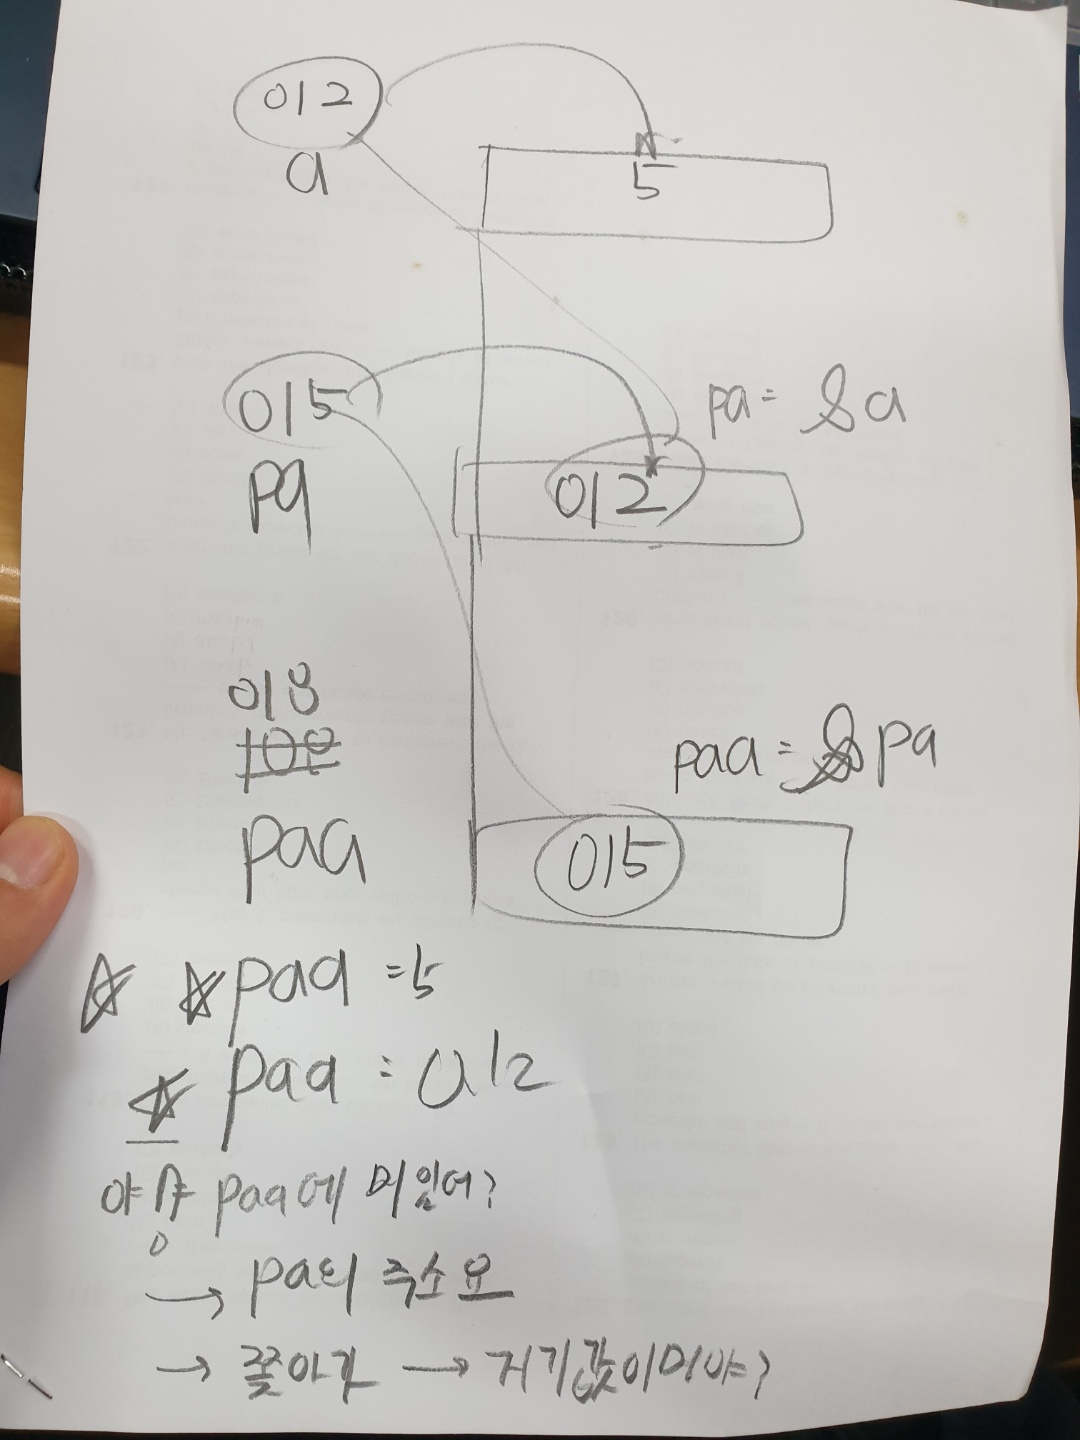 012
a
5
015
pa
pa = &a
012
018
100
paa
paa = &pa
015
**paa = 5
*paa = 012
야 paa에 머있어?
→ pa의 주소요
→ 쫓아가 → 거기값이머야?